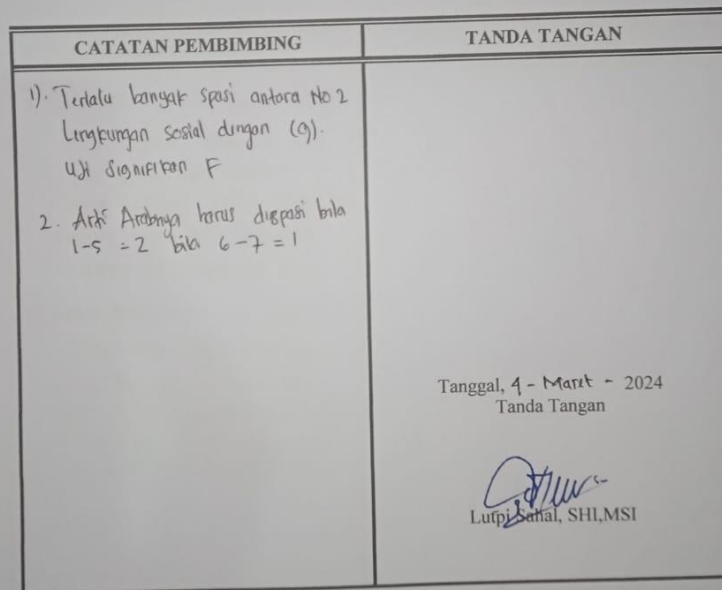 CATATAN PEMBIMBING
TANDA TANGAN
1). Terlalu banyak spasi antara No 2
Lingkungan sosial dengan (g).
Uji Signifikan F
2. Arti Arabnya harus dispasi bila
1-5 = 2 bila 6-7 = 1
Tanggal, 4 - Maret - 2024
Tanda Tangan
Lutpi Sahal, SHI,MSI